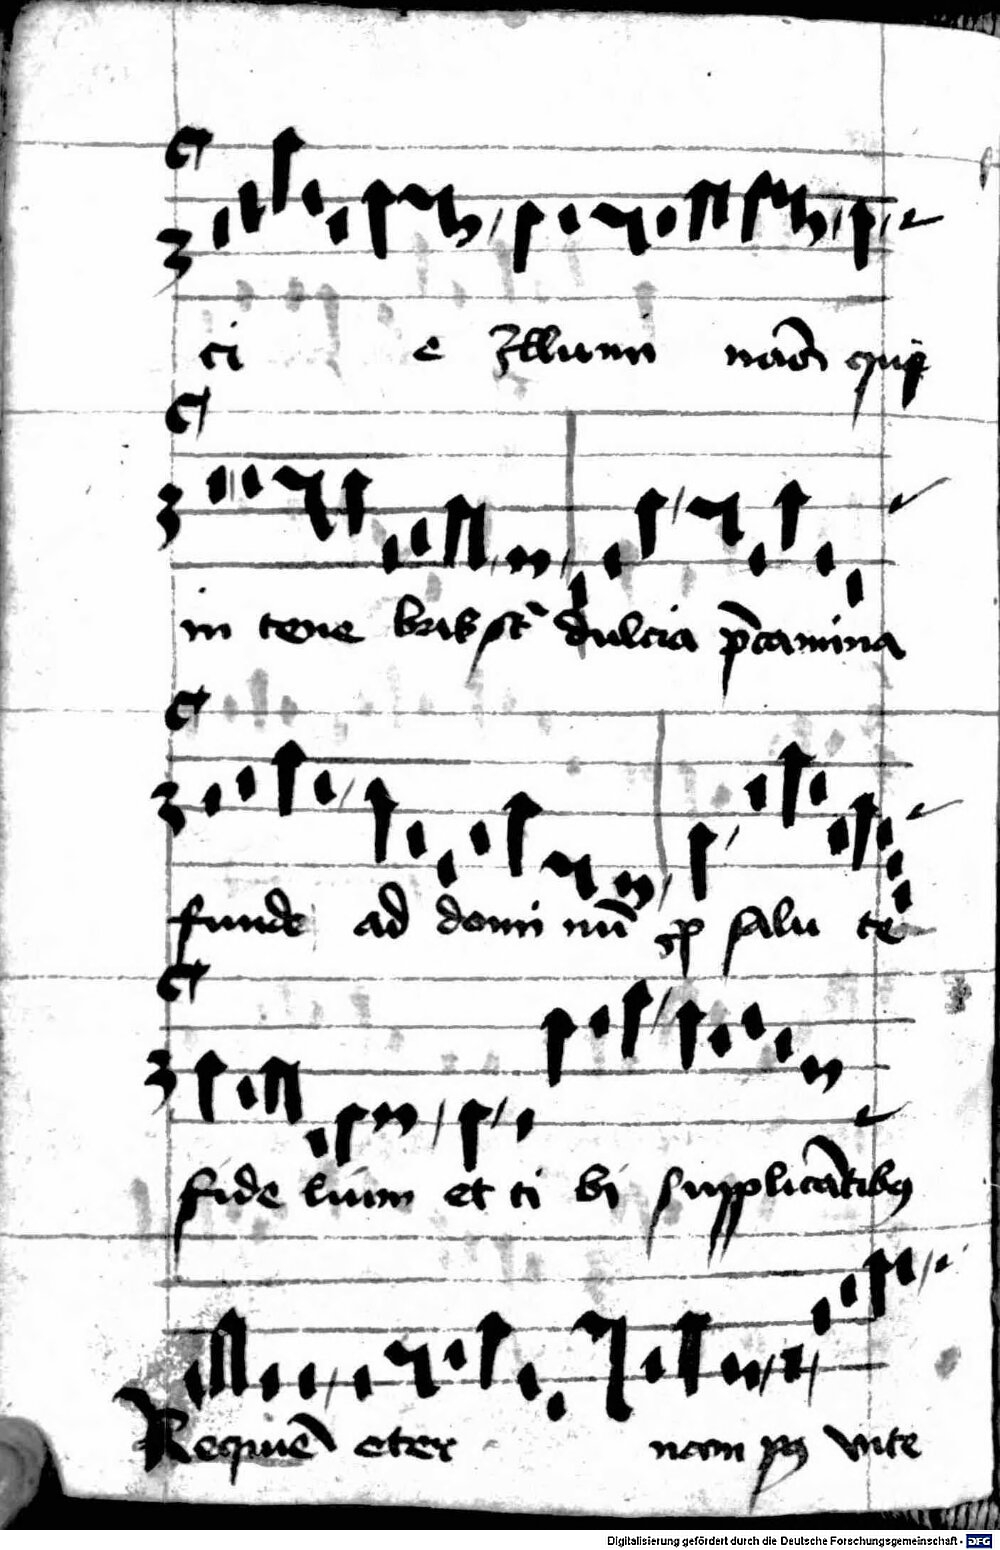 ci e Illumi nacō qui
in tene brib st̄ dulcia p̄camina
funde ad domi nū p salu te
fide lium et ti bi supplicātibꝰ
Requiē eter nam pꝰ vite
Digitalisierung gefördert durch die Deutsche Forschungsgemeinschaft - DFG